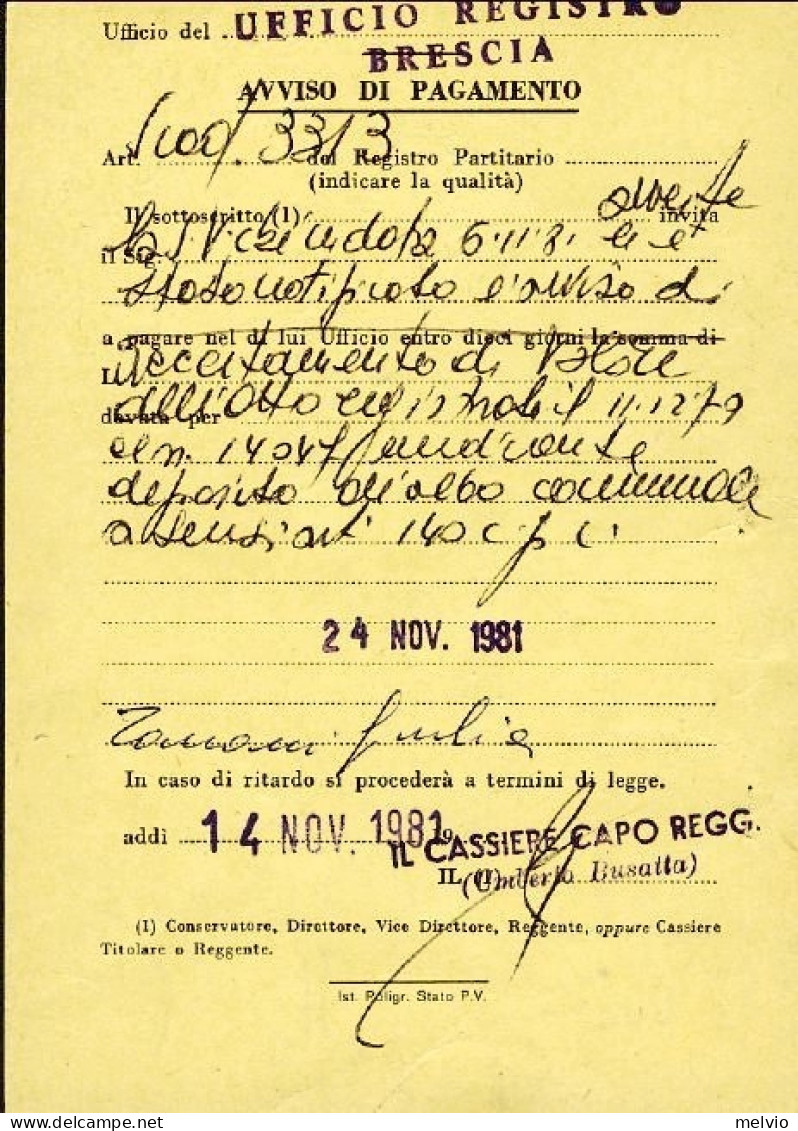 Ufficio del UFFICIO REGISTRO
BRESCIA
AVVISO DI PAGAMENTO
Art. 3313 del Registro Partitario
(indicare la qualità)
Il sottoscritto (1) avverte invita
il Sig. S.V. che in data 6.11.81 le è
stato notificato l'avviso di
a pagare nel di lui Ufficio entro dieci giorni la somma di
L. accertamento di valore
dell'atto registrato il 11.12.79
dovuta per
al n. 14047 mediante
deposito all'albo comunale
a sensi art. 140 c.p.c.
24 NOV. 1981
In caso di ritardo si procederà a termini di legge.
addì 14 NOV. 1981 19
IL CASSIERE CAPO REGG.
IL (1) (Umberto Busatta)
(1) Conservatore, Direttore, Vice Direttore, Reggente, oppure Cassiere
Titolare o Reggente.
Ist. Poligr. Stato P.V.
melvio